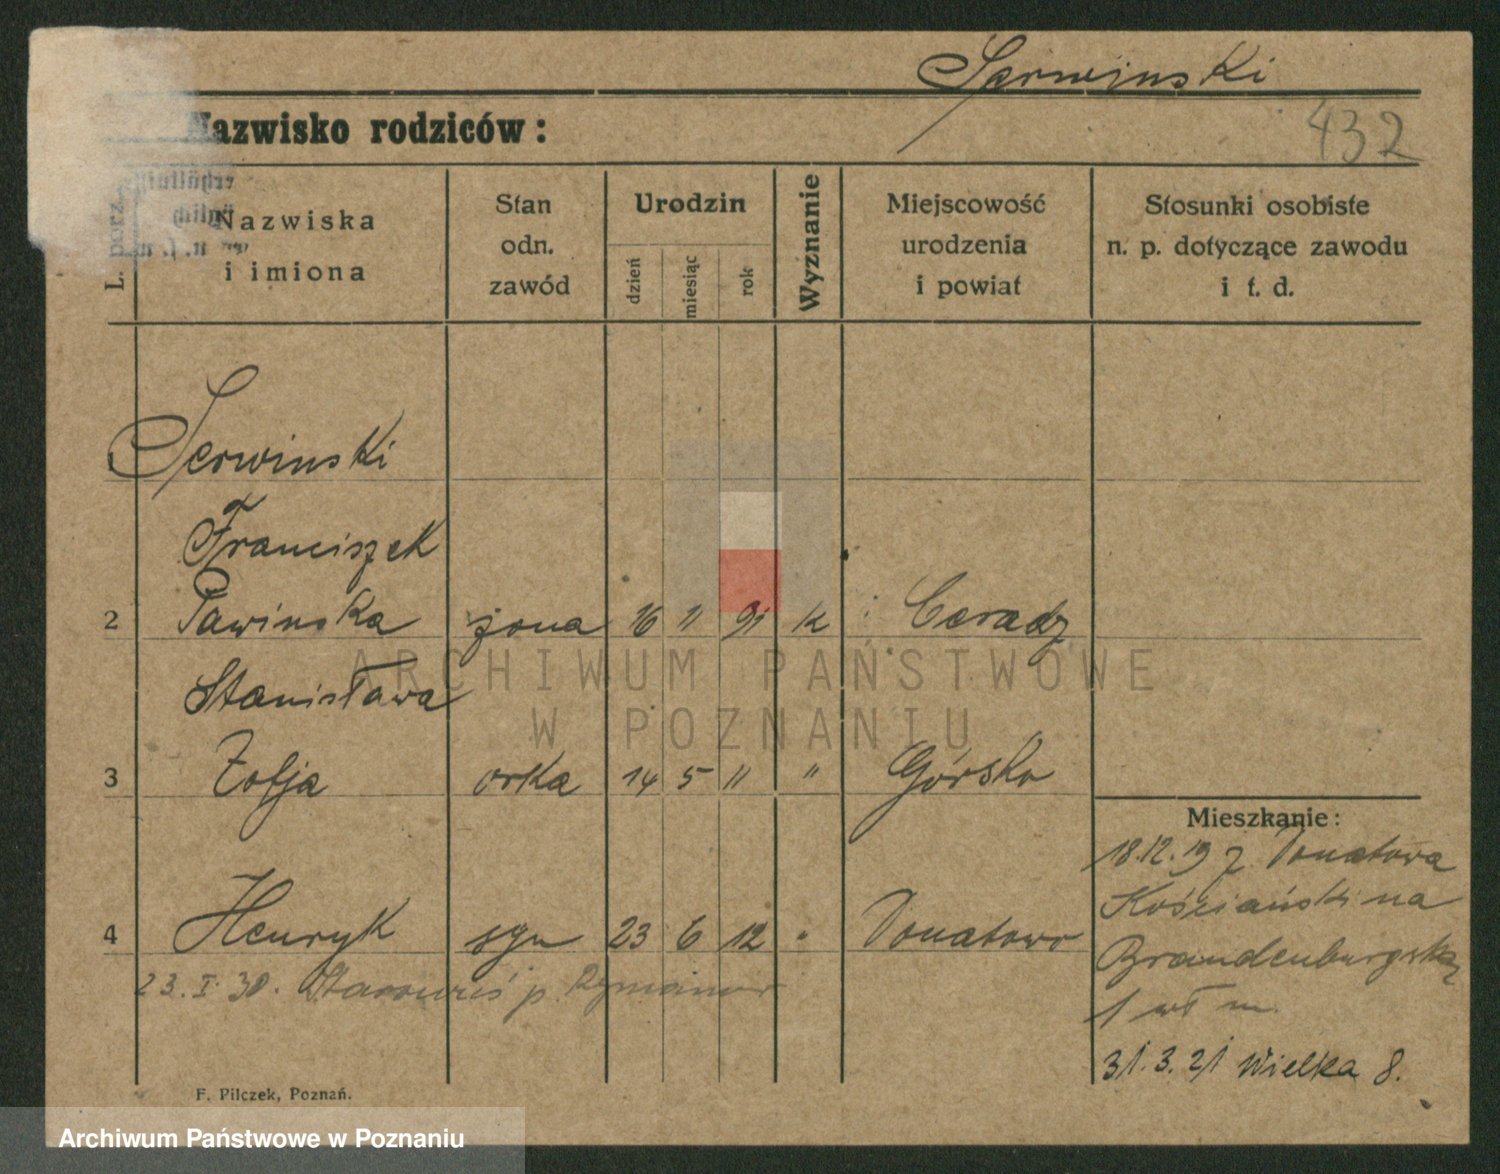 Serwinski
Nazwisko rodziców:
432
L. porz.
Nazwiska
i imiona
Stan
odn.
zawód
Urodzin
dzień
miesiąc
rok
Wyznanie
Miejscowość
urodzenia
i powiat
Stosunki osobiste
n. p. dotyczące zawodu
i t. d.
1 Serwinski
Franciszek
2 Pawinska żona 16 11 91 k Ceradz
Stanisława
3 Zofja orka 14 5 11 " Górsko
4 Henryk syn 23 6 12 " Donatowo
23. I. 30. p. Rymanów
Mieszkanie:
18.12.19 z Donatowa
Kościański na
Brandenburgską
1 wł m.
31.3.21 Wielka 8.
F. Pilczek, Poznań.
ARCHIWUM PAŃSTWOWE
W POZNANIU
Archiwum Państwowe w Poznaniu